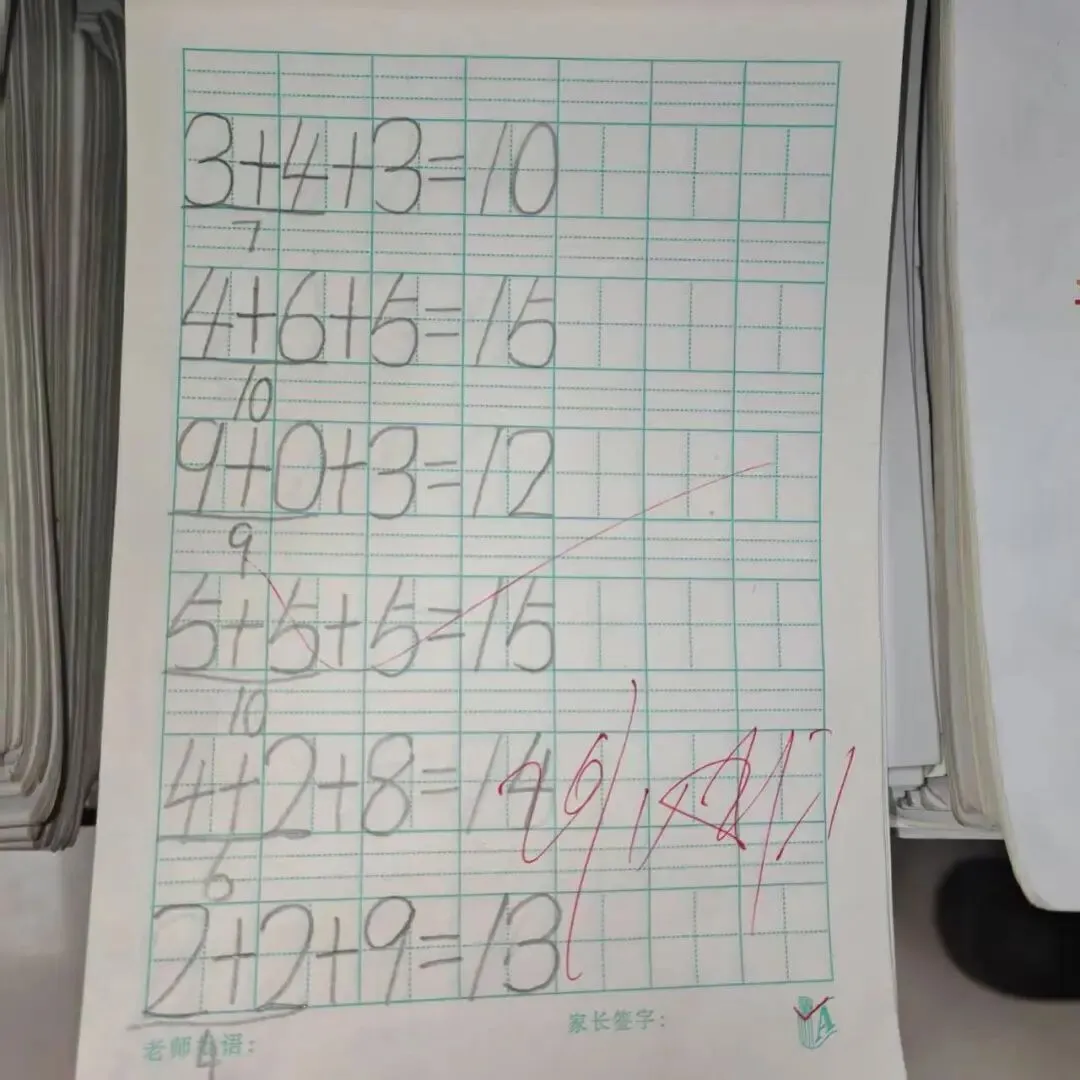 3+4+3=10
7
4+6+5=15
10
9+0+3=12
9
5+5+5=15
10
4+2+8=14
6
2+2+9=13
4
老师 语:
家长签字:
A